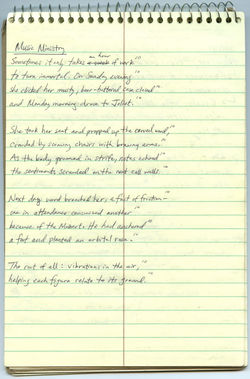 Music Ministry
an hour
Sometimes it only takes of work
to turn immortal. On Sunday evening
she clicked her musty, brass-buttoned case closed
and Monday morning drove to Joliet.
She took her seat and propped up the carved wood,
crowded by scrawny chairs with brawny arms.
As the body groaned in strife, notes echoed
the sentiments scrawled on the next cell wall.
Next day word breached her: a fact of friction —
one in attendance consumed another
because of the Mozart. He had anchored
a fat and planted an orbital rose.
The root of all: vibrations in the air,
helping each figure relate to its ground.